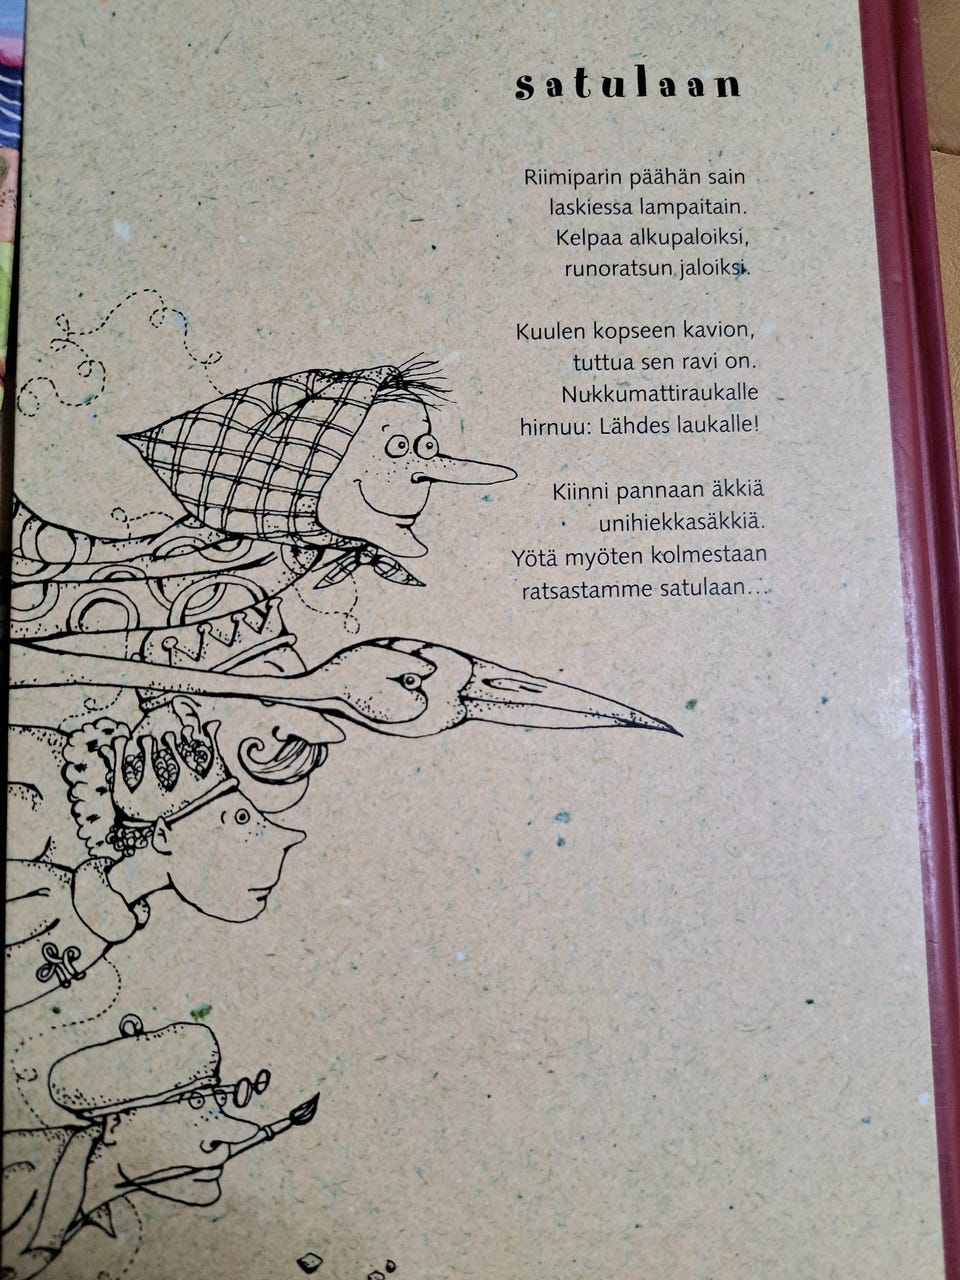 satulaan
Riimiparin päähän sain
laskiessa lampaitain.
Kelpaa alkupaloiksi,
runoratsun jaloiksi.
Kuulen kopseen kavion,
tuttua sen ravi on.
Nukkumattiraukalle
hirnuu: Lähdes laukalle!
Kiinni pannaan äkkiä
unihiekkasäkkiä.
Yötä myöten kolmestaan
ratsastamme satulaan...